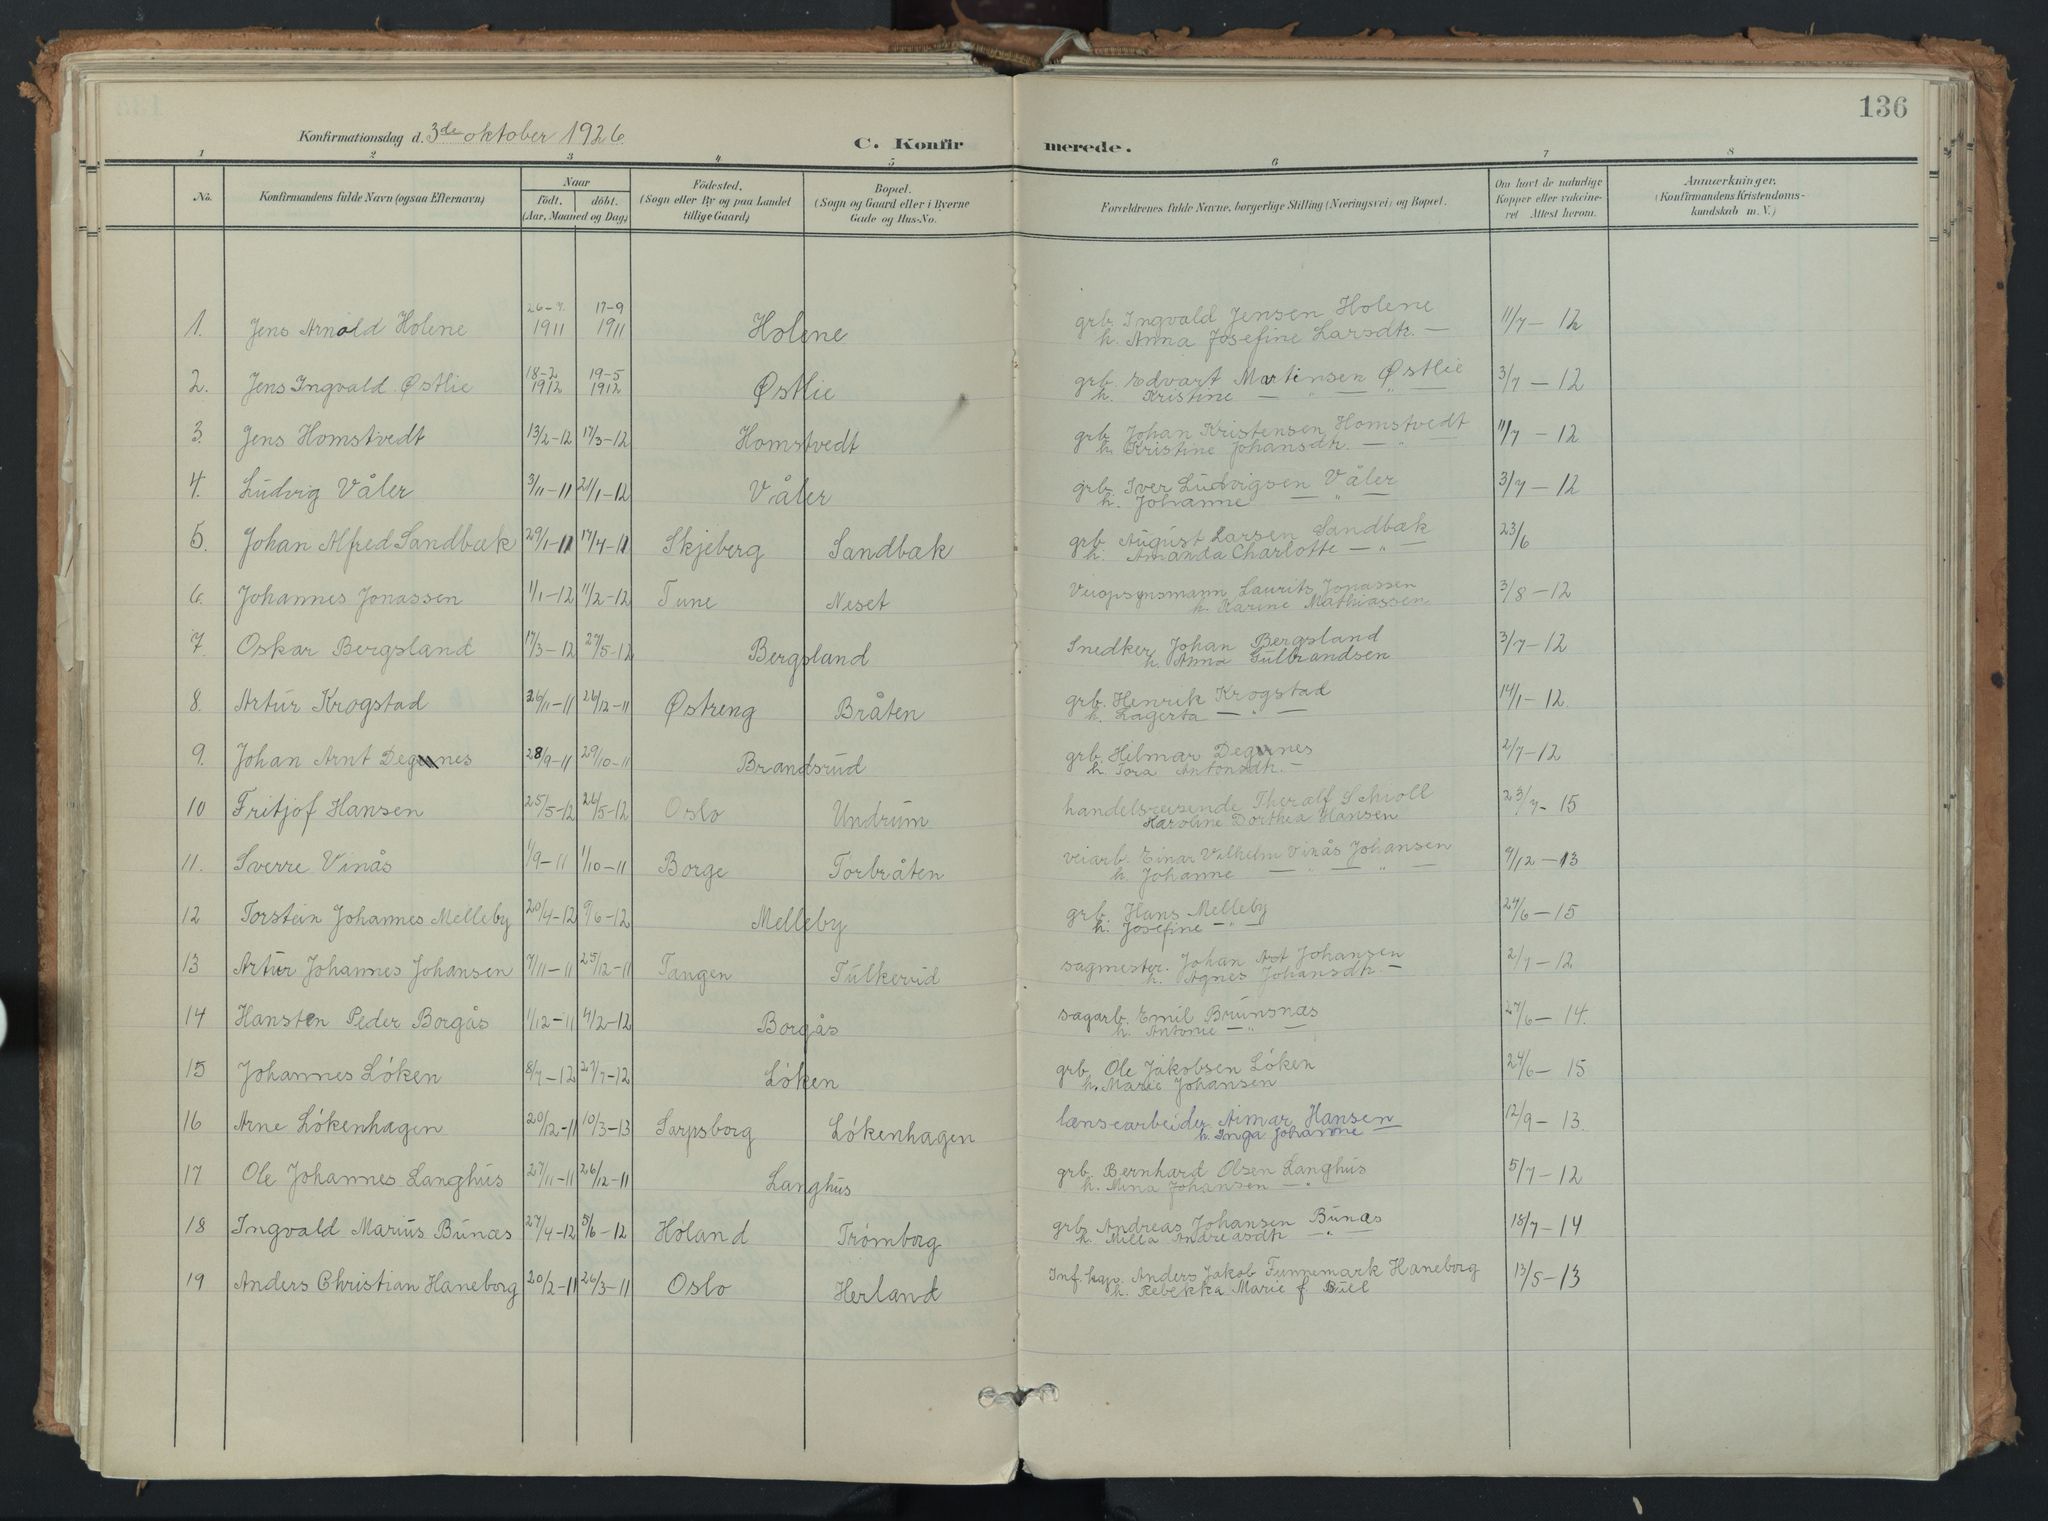 136
Konfirmationsdag d. 3de oktober 1926.
C. Konfirmerede.
1 2 3 4 5 6 7 8
No. Konfirmandens fulde Navn (ogsaa Efternavn) Naar Født. døbt. (Aar, Maaned og Dag) Födested. (Sogn eller By og paa Landet tillige Gaard) Bopæl. (Sogn og Gaard eller i Byerne Gade og Hus-No. Forældrenes fulde Navne, borgerlige Stilling (Næringsvei) og Bopæl. Om havt de naturlige Kopper eller vaccineret Attest herom. Anmærkninger. (Konfirmandens Kristendomskundskab m. V.)
1. Jens Arnold Holene 26-7. 1911 17-9 1911 Holene grb. Ingvald Jensen Holene 11/7 - 12
h. Anna Josefine Larsdtr. —
2. Jens Ingvald Østlie 18-2 1912 19-5 1912 Østlie grb. Edvart Martinsen Østlie 3/7 - 12
h. Kristine — " — " —
3. Jens Homstvedt 13/2-12 17/3-12 Homstvedt grb. Johan Kristensen Homstvedt 11/7 - 12
h. Kristine Johansdtr. — " —
4. Ludvig Våler 3/11-11 21/1-12 Våler grb. Iver Ludvigsen Våler 3/7 - 12
h. Johanne — " —
5. Johan Alfred Sandbæk 29/1-11 17/4-11 Skjeberg Sandbæk grb. August Larsen Sandbæk 23/6
h. Amanda Charlotte — " —
6. Johannes Jonassen 1/1-12 11/2-12 Tune Neset Veiopsynsmann Laurits Jonassen 3/8-12
h. Karine Mathiassen
7. Oskar Bergsland 17/3-12 27/5-12 Bergsland Snedker Johan Bergsland 3/7-12
h. Anna Gulbrandsen
8. Artur Krogstad 26/11-11 26/12-11 Østreng Bråten grb. Henrik Krogstad 14/1-12.
h. Lagerta — " —
9. Johan Arnt Degnes 28/9-11 29/10-11 Brandsrud grb. Hilmar Degnes 2/7-12
h. Tora Antonsdtr. —
10 Fritjof Hansen 25/5-12 26/5-12 Oslo Undrum handelsreisende Theralf Schioll 23/7-15
Karoline Dorthea Hansen
11. Sverre Vinås 1/9-11 1/10-11 Borge Torbråten veiarb. Einar Vilhelm Vinås Johansen 9/12-13
h. Johanne — " — "
12 Torstein Johannes Melleby 20/4-12 9/6-12 Melleby grb. Hans Melleby 24/6-15
h. Josefine — " —
13 Artur Johannes Johansen 7/11-11 25/12-11 Tangen Tulkerud sagmester. Johan Ast Johansen 2/7-12
h. Agnes Johansdtr. —
14 Hansten Peder Borgås 1/12-11 4/2-12 Borgås sagarb. Emil Brunsnæs 27/6-14.
h. Antonie — " —
15 Johannes Løken 8/7-12 27/7-12 Løken grb. Ole Jakobsen Løken 24/6-15
h. Marie Johansen
16 Arne Løkenhagen 20/12-11 10/3-13 Sarpsborg Løkenhagen lænsearbeider Aimar Hansen 12/9-13.
h. Inga Johanne —
17 Ole Johannes Langhus 27/11-11 26/12-11 Langhus grb. Bernhard Olsen Langhus 5/7-12
h. Mina Johansen — " —
18 Ingvald Marius Bunæs 27/4-12 5/6-12 Høland Trømborg grb. Andreas Johansen Bunæs 18/7-14
h. Milla Andreasdtr — " —
19 Anders Christian Haneborg 20/2-11 26/3-11 Oslo Herland Inf. kap. Anders Jakob Funnemark Haneborg 13/5-13
h. Rebekka Marie f. Bull